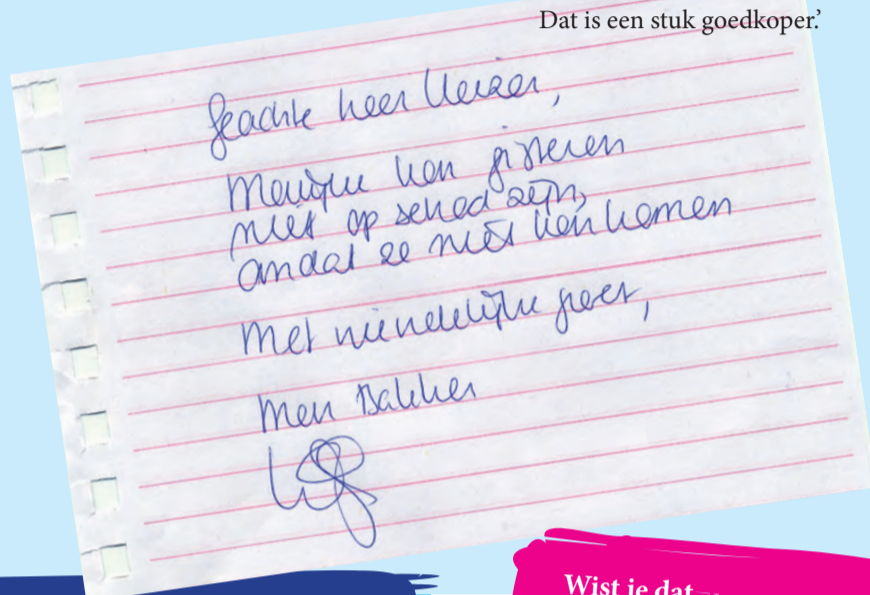 Dat is een stuk goedkoper.’
Geachte heer Keizer,
kon gisteren
niet op school zijn,
omdat ze niet kon komen
Met vriendelijke groet,
Bakker
Wist je dat